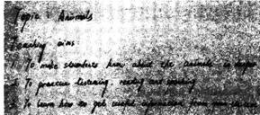 Topic : Animals
Teaching aims :
1. To make students know about the animals in
2. To practise listening, reading and speaking
3. To learn how to get useful information from